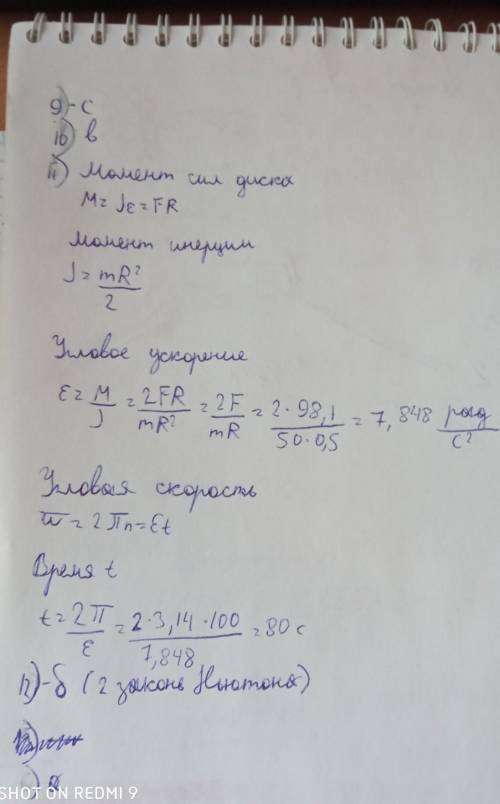 9)-с
10) в
11) Момент сил диска
M = Jε = FR
Момент инерции
J = mR²/2
Угловое ускорение
ε = M/J = 2FR/mR² = 2F/mR = 2·98,1/50·0,5 = 7,848 рад/с²
Угловая скорость
ω = 2πn = εt
Время t
t = 2π/ε = 2·3,14·100/7,848 = 80 с
12)-б (2 законь Ньютона)
SHOT ON REDMI 9